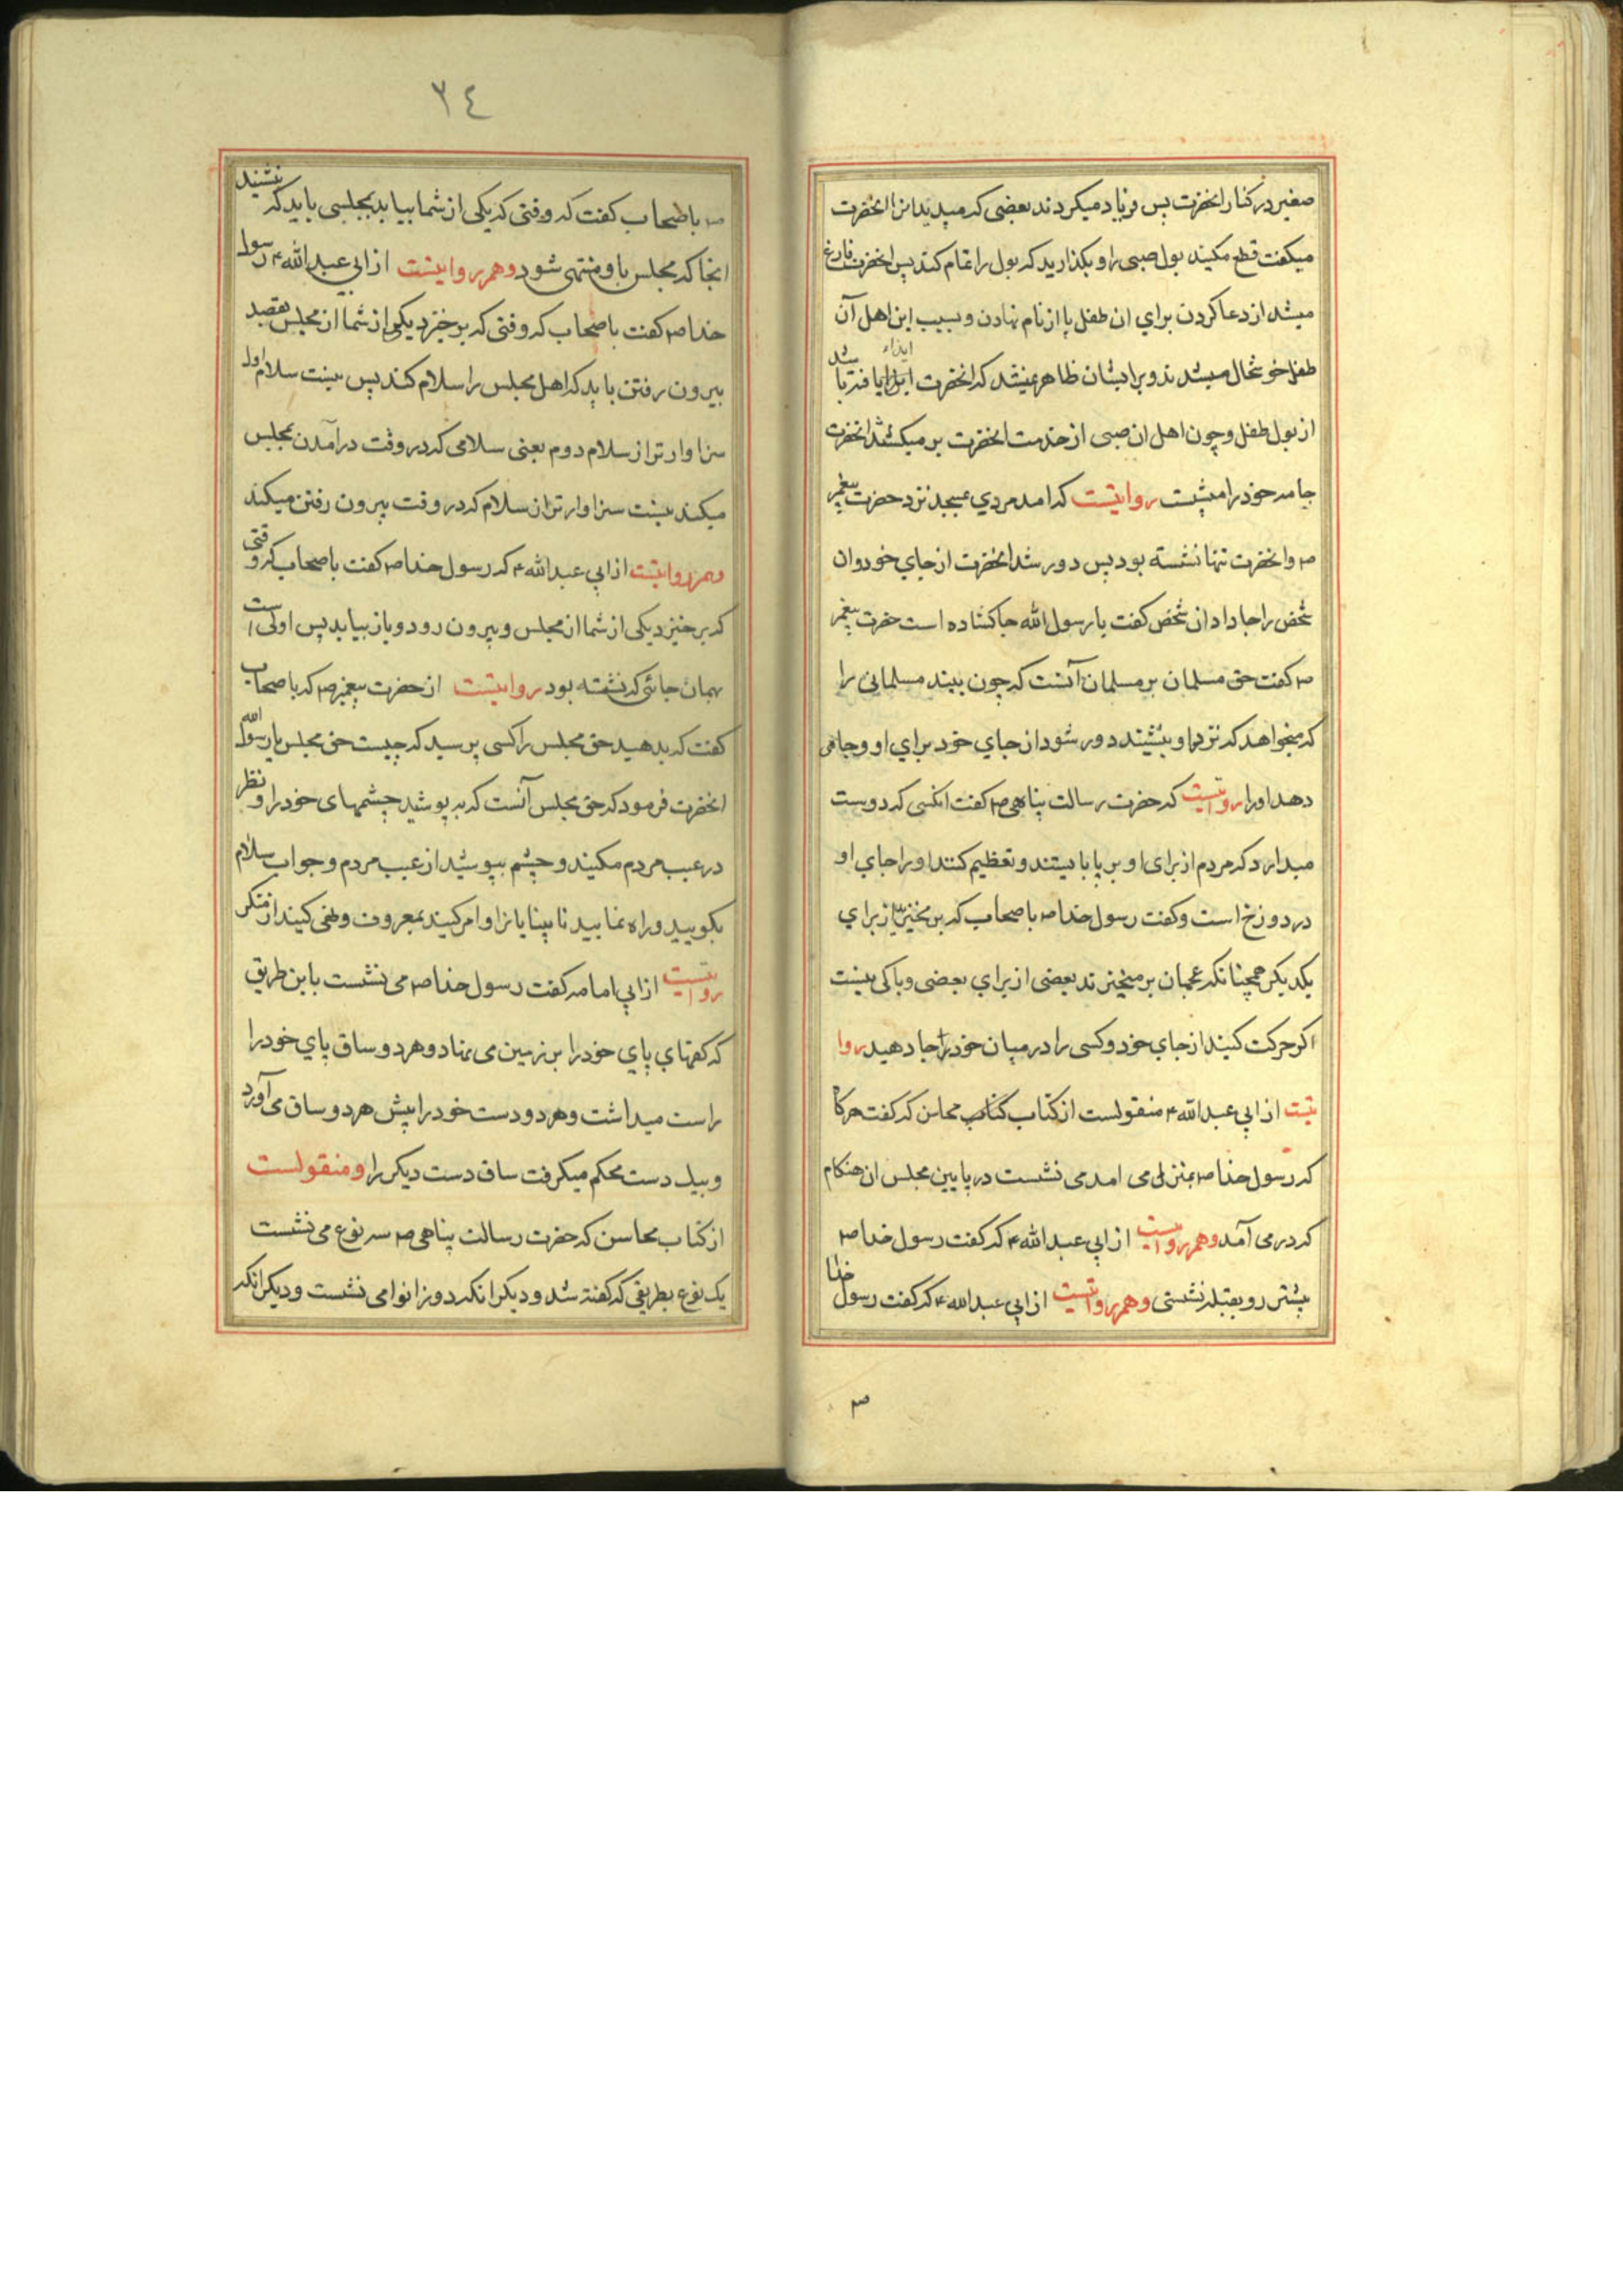 صغیر در کنار انحضرت پس فریاد میکردند بعضی که میدیدانرا انحضرت
میکفت قطع مکنید بول صبی را و بکذارید که بول را تمام کند پس انحضرت فارغ
میشد از دعا کردن برای ان طفل یا از نام نهادن و بسبب این اهل آن
طفل خوشحال میشدند و بر ایشان ظاهر نمیشد که انحضرت ایذاء یافته باشد
از بول طفل و چون اهل ان صبی از خدمت انحضرت بر میکشتند انحضرت
جامه خود را میشست روایتست که امد مردی بمسجد نزد حضرت پیغمبر
ص و انحضرت تنها نشسته بود پس دور شد انحضرت از جای خود و ان
شخص را جا داد ان شخص کفت یا رسول الله جا کشاده است حضرت پیغمبر
ص کفت حق مسلمان بر مسلمان آنست که چون بیند مسلمانی را
که میخواهد که نزد او بنشیند دور شود از جای خود برای او و جای
دهد او را روایتست که حضرت رسالت پناهی ص کفت انکسی که دوست
میدارد که مردم از برای او بر پا بایستند و تعظیم کنند او را جای او
در دوزخ است و کفت رسول خدا ص باصحاب که بر مخیزید از برای
یکدیکر همچنانکه عجمان بر میخیزند بعضی از برای بعضی و باکی نیست
اکر حرکت کنید از جای خود و کسی را در میان خود را جا دهید روا
یتست از ابی عبدالله ع منقولست از کتاب کتاب محاسن که کفت هر کا
که رسول خدا ص بمنزلی می امد می نشست در پایین مجلس ان هنکام
که در می آمد وهم روایتست از ابی عبدالله ع که کفت رسول خدا ص
بیشتر رو بقبله نشستی وهم روایتست از ابی عبدالله ع که کفت رسول خدا
ص
٢٤
ص باصحاب کفت که وقتی که یکی از شما بیاید بمجلسی باید که نشیند
انجا که مجلس باو منتهی شود وهم روایتست از ابی عبدالله ع رسول
خدا ص کفت باصحاب که وقتی که بر خیزد یکی از شما از مجلس بقصد
بیرون رفتن باید که اهل مجلس را سلام کند پس نیست سلام اول
سزاوارتر از سلام دوم یعنی سلامی که در وقت درآمدن بمجلس
میکند نیست سزاوارتر از سلام که در وقت بیرون رفتن میکند
وهم روایتست از ابی عبدالله ع که رسول خدا ص کفت باصحاب که وقتی
که بر خیزد یکی از شما از مجلس و بیرون رود و باز بیاید پس اولی است
بهمان جائی که نشسته بود روایتست از حضرت پیغمبر ص که باصحاب
کفت که بدهید حق مجلس را کسی پرسید که چیست حق مجلس یا رسول الله
انحضرت فرمود که حق مجلس آنست که به پوشید چشمهای خود را و نظر
در عیب مردم مکنید و چشم بپوشید از عیب مردم و جواب سلام
بکویید و راه نمایید نابینایانرا و امر کنید بمعروف و نهی کنید از منکر
روایتست از ابی امامه کفت رسول خدا ص می نشست باین طریق
که کفهای پای خود را بر زمین می نهاد و هر دو ساق پای خود را
راست میداشت و هر دو دست خود را پیش هر دو ساق می آورد
و بیک دست محکم میکرفت ساق دست دیکر را و منقولست
از کتاب محاسن که حضرت رسالت پناهی ص سه نوع می نشست
یک نوع بطریقی که کفته شد و دیکر انکه دو زانو می نشست و دیکر انکه